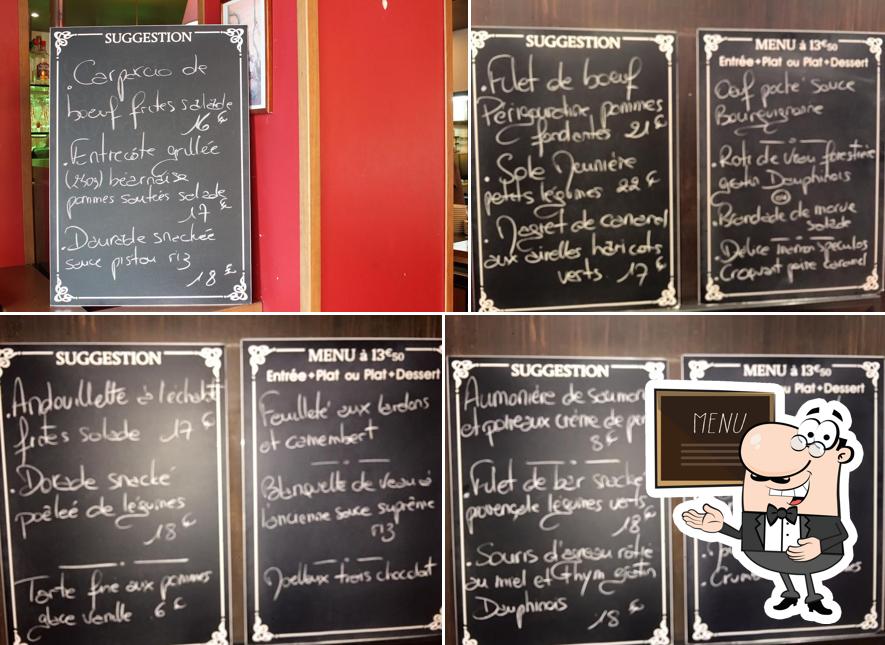 SUGGESTION
. Carpaccio de
boeuf frites salade
16 €
. Entrecôte grillée
(250g) béarnaise
pommes sautées salade
17 €
. Daurade snackée
sauce pistou riz
18 €
SUGGESTION
. Filet de boeuf
Périgourdine pommes
fondantes 21 €
. Sole Meunière
petits légumes 22 €
. Magret de canard
aux airelles haricots
verts 17 €
MENU à 13€50
Entrée+Plat ou Plat+Dessert
Oeuf poché sauce
Bourguignonne
. Roti de veau forestière
gratin Dauphinois
ou
. Brandade de morue
salade
. Délice marron speculos
. Croquant poire caramel
SUGGESTION
. Andouillette à l'échalot
frites salade 17 €
. Dorade snacké
poêlée de légumes
18 €
Tarte fine aux pommes
glace vanille 6 €
MENU à 13€50
Entrée+Plat ou Plat+Dessert
Feuilleté aux lardons
et camembert
Blanquette de veau à
l'ancienne sauce suprême
riz
Moelleux trois chocolat
SUGGESTION
Aumonière de saumon
et poireaux crème de
8 €
. Filet de bar snacké
provençale légumes verts
18 €
. Souris d'agneau rôtie
au miel et thym gratin
Dauphinois 18 €
MENU à 13€50
ou Plat+Dessert
MENU